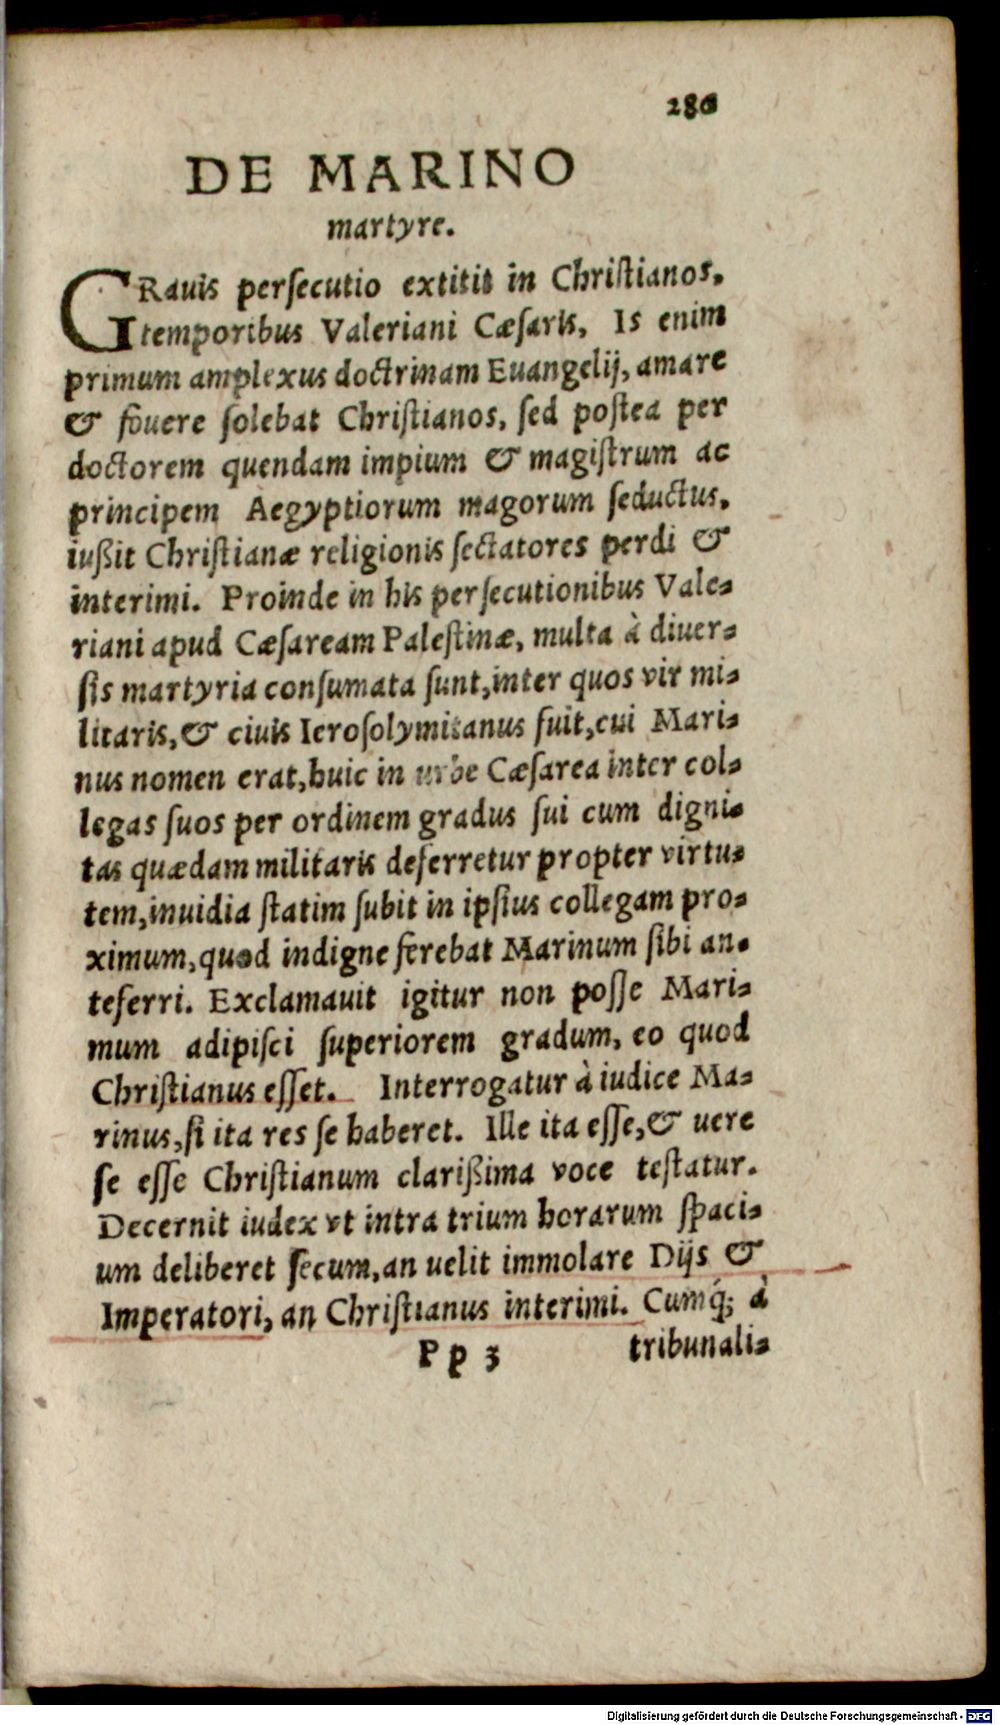 286
DE MARINO
martyre.
GRauis perſecutio extitit in Chriſtianos,
temporibus Valeriani Cæſaris, Is enim
primum amplexus doctrinam Euangelij, amare
& fouere ſolebat Chriſtianos, ſed poſtea per
doctorem quendam impium & magiſtrum ac
principem Aegyptiorum magorum ſeductus,
iußit Chriſtianæ religionis ſectatores perdi &
interimi. Proinde in his perſecutionibus Vale⸗
riani apud Cæſaream Paleſtinæ, multa à diuer⸗
ſis martyria conſumata ſunt, inter quos vir mi⸗
litaris, & ciuis Ieroſolymitanus fuit, cui Mari⸗
nus nomen erat, huic in urbe Cæſarea inter col⸗
legas ſuos per ordinem gradus ſui cum digni⸗
tas quædam militaris deferretur propter virtu⸗
tem, inuidia ſtatim ſubit in ipſius collegam pro⸗
ximum, quod indigne ferebat Marinum ſibi an⸗
teferri. Exclamauit igitur non poſſe Mari⸗
mum adipiſci ſuperiorem gradum, eo quod
Chriſtianus eſſet. Interrogatur à iudice Ma⸗
rinus, ſi ita res ſe haberet. Ille ita eſſe, & uere
ſe eſſe Chriſtianum clarißima voce teſtatur.
Decernit iudex vt intra trium horarum ſpaci⸗
um deliberet ſecum, an uelit immolare Dijs &
Imperatori, an Chriſtianus interimi. Cumq́; à
Pp 3 tribunali⸗
Digitalisierung gefördert durch die Deutsche Forschungsgemeinschaft - DFG